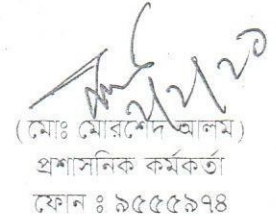 (মোঃ মোরশেদ আলম)
প্রশাসনিক কর্মকর্তা
ফোন ঃ ৯৫৫৫৯৭৪